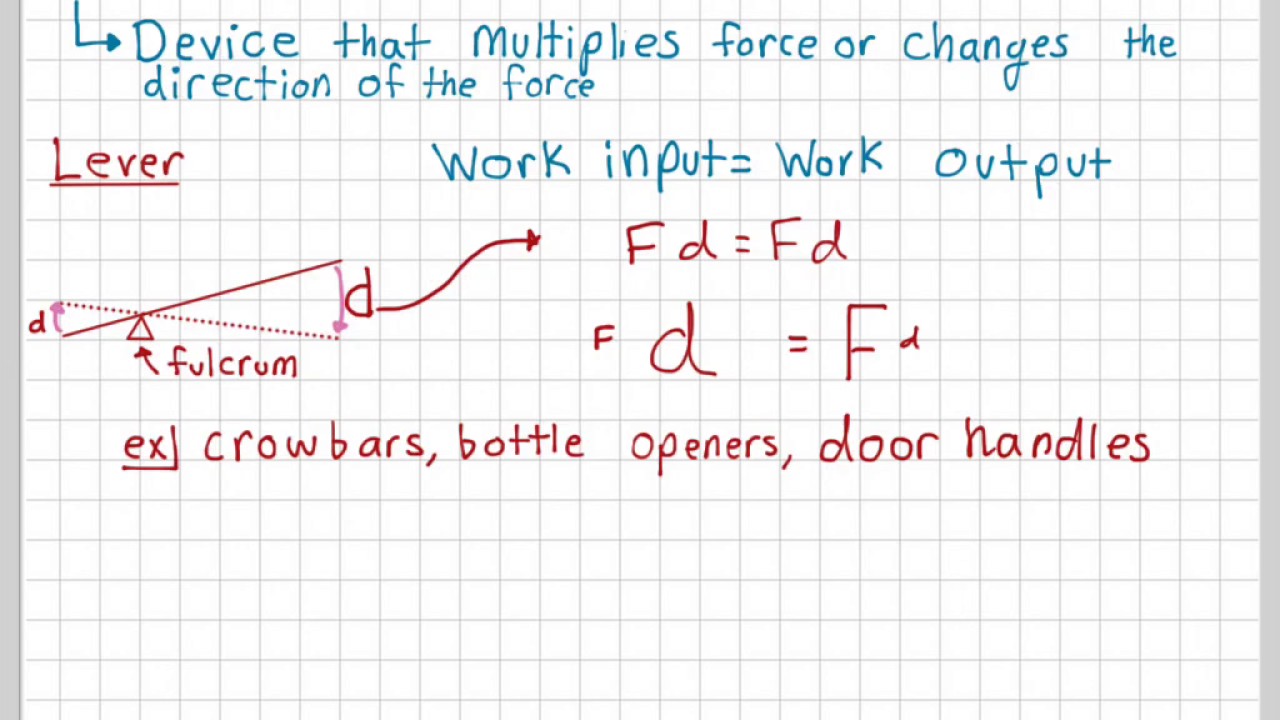 Device that multiplies force or changes the
direction of the force
Lever
Work input = Work output
Fd = Fd
d
d
F d = F d
fulcrum
ex] crowbars, bottle openers, door handles